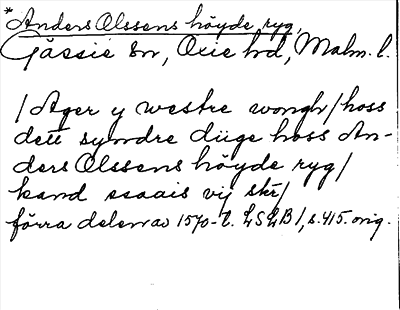 *Anders Olssens höyde ryg.
Gässie sn, Oxie hd, Malm. l.
/Ager y westre wongh/hoss
dett syndre düge hoss An-
ders Olssens höyde ryg/
kand saais vij skr/
förra delen av 1570-t. LSLB/, s. 415. orig.